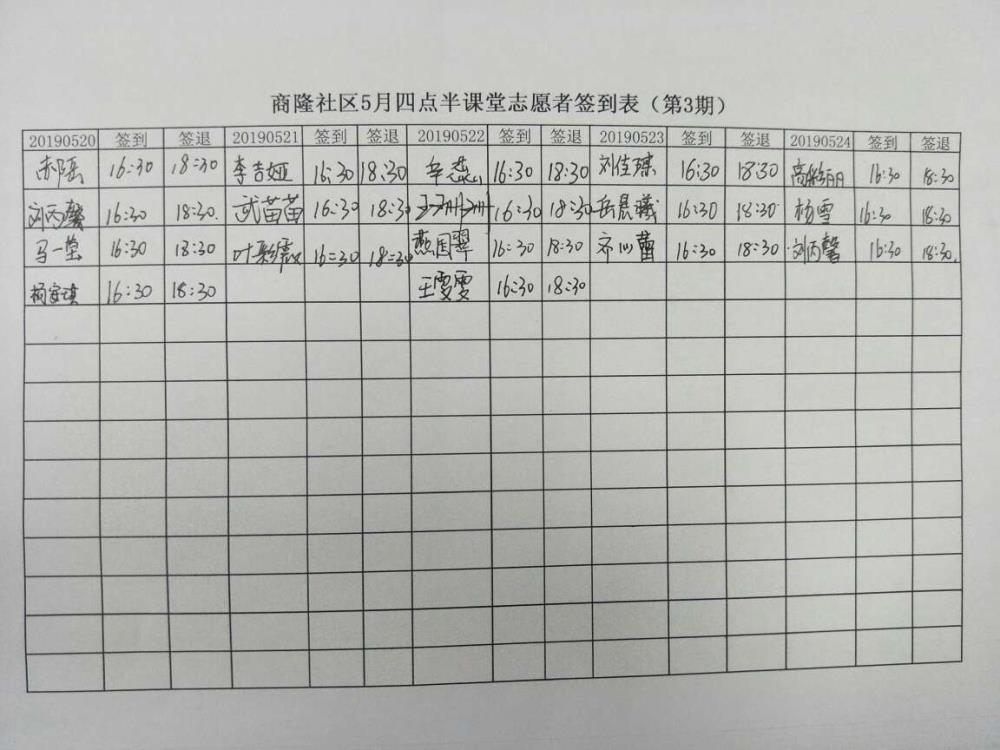 商隆社区5月四点半课堂志愿者签到表（第3期）
20190520 签到 签退 20190521 签到 签退 20190522 签到 签退 20190523 签到 签退 20190524 签到 签退
16:30 18:30 李吉娅 16:30 18:30 辛蕊 16:30 18:30 刘佳琪 16:30 18:30 高彩丽 16:30 18:30
刘丙馨 16:30 18:30. 武苗苗 16:30 18:30 16:30 18:30 岳晨曦 16:30 18:30 杨雪 16:30 18:30
马一莹 16:30 18:30 叶彩霞 16:30 18:30 燕国翠 16:30 18:30 16:30 18:30 刘丙馨 16:30 18:30.
16:30 18:30 王雯雯 16:30 18:30